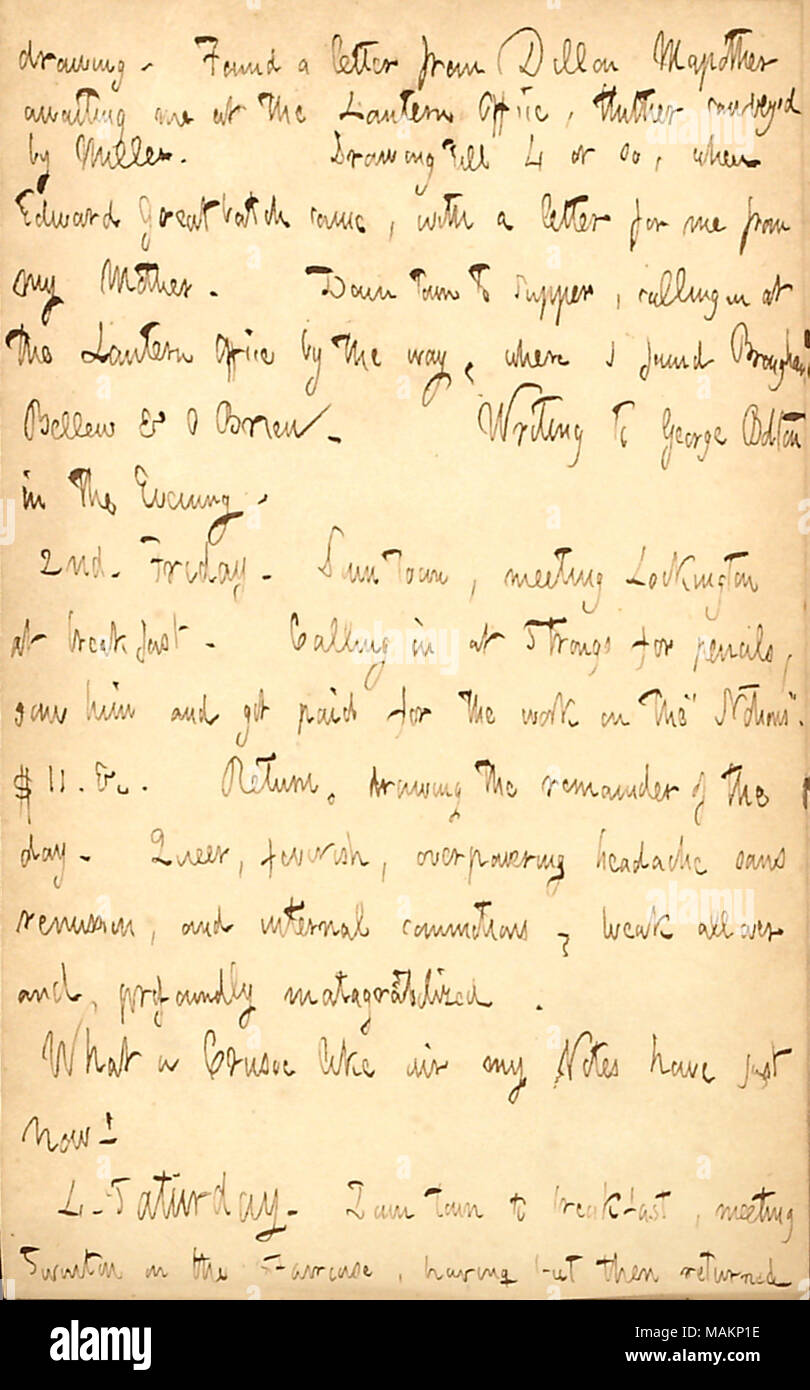 drawing. Found a letter from Dillon Mapother
awaiting me at the Lantern Office, thither conveyed
by Miller. Drawing till 4 or so, when
Edward Greatbatch came, with a letter for me from
my Mother. Down town to supper, calling in at
the Lantern Office by the way, where I found Brougham
Bellew & O Brien. Writing to George Bolton
in the Evening.
2nd. Friday. Down town, meeting Lockington
at breakfast. Calling in at Strongs for pencils,
saw him and got paid for the work on the "Notions".
$ 11. &c. Return. drawing the remainder of the
day. Queer, feverish, overpowering headache sans
remission, and internal commotions, weak all over
and profoundly matagrabolized.
What a Crusoe like air my Notes have just
now!
4. Saturday. Down town to breakfast, meeting
Swinton on the Staircase, having but then returned
alamy
Image ID: MAKP1E
www.alamy.com